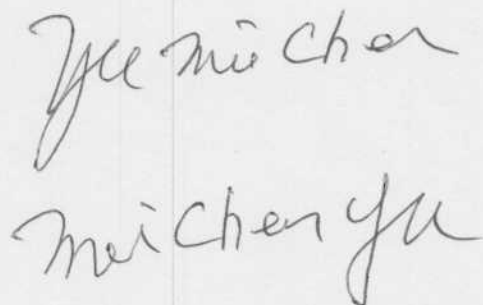 Yu Mei Chen
Mei Chen Yu